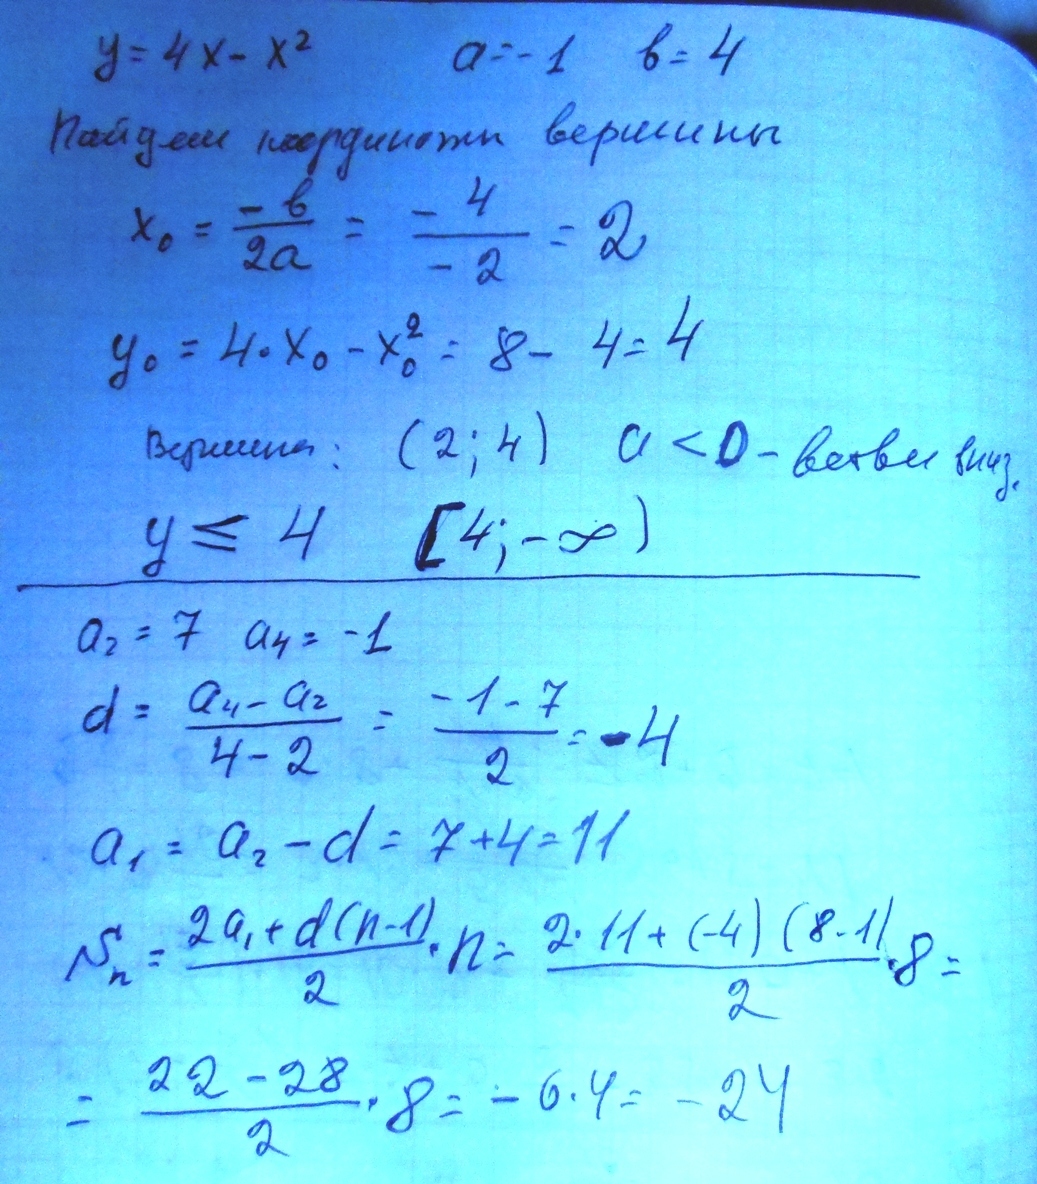 y = 4x - x² a = -1 в = 4
Найдем координаты вершины
x₀ = -в/2a = -4/-2 = 2
y₀ = 4·x₀ - x₀² = 8 - 4 = 4
Вершина: (2; 4) a < 0 - ветви вниз.
y ≤ 4 [4; -∞)
a₂ = 7 a₄ = -1
d = a₄ - a₂/4 - 2 = -1 - 7/2 = -4
a₁ = a₂ - d = 7 + 4 = 11
Sₙ = 2a₁ + d(n-1)/2 · n = 2·11 + (-4)(8-1)/2 · 8 =
= 22 - 28/2 · 8 = -6·4 = -24